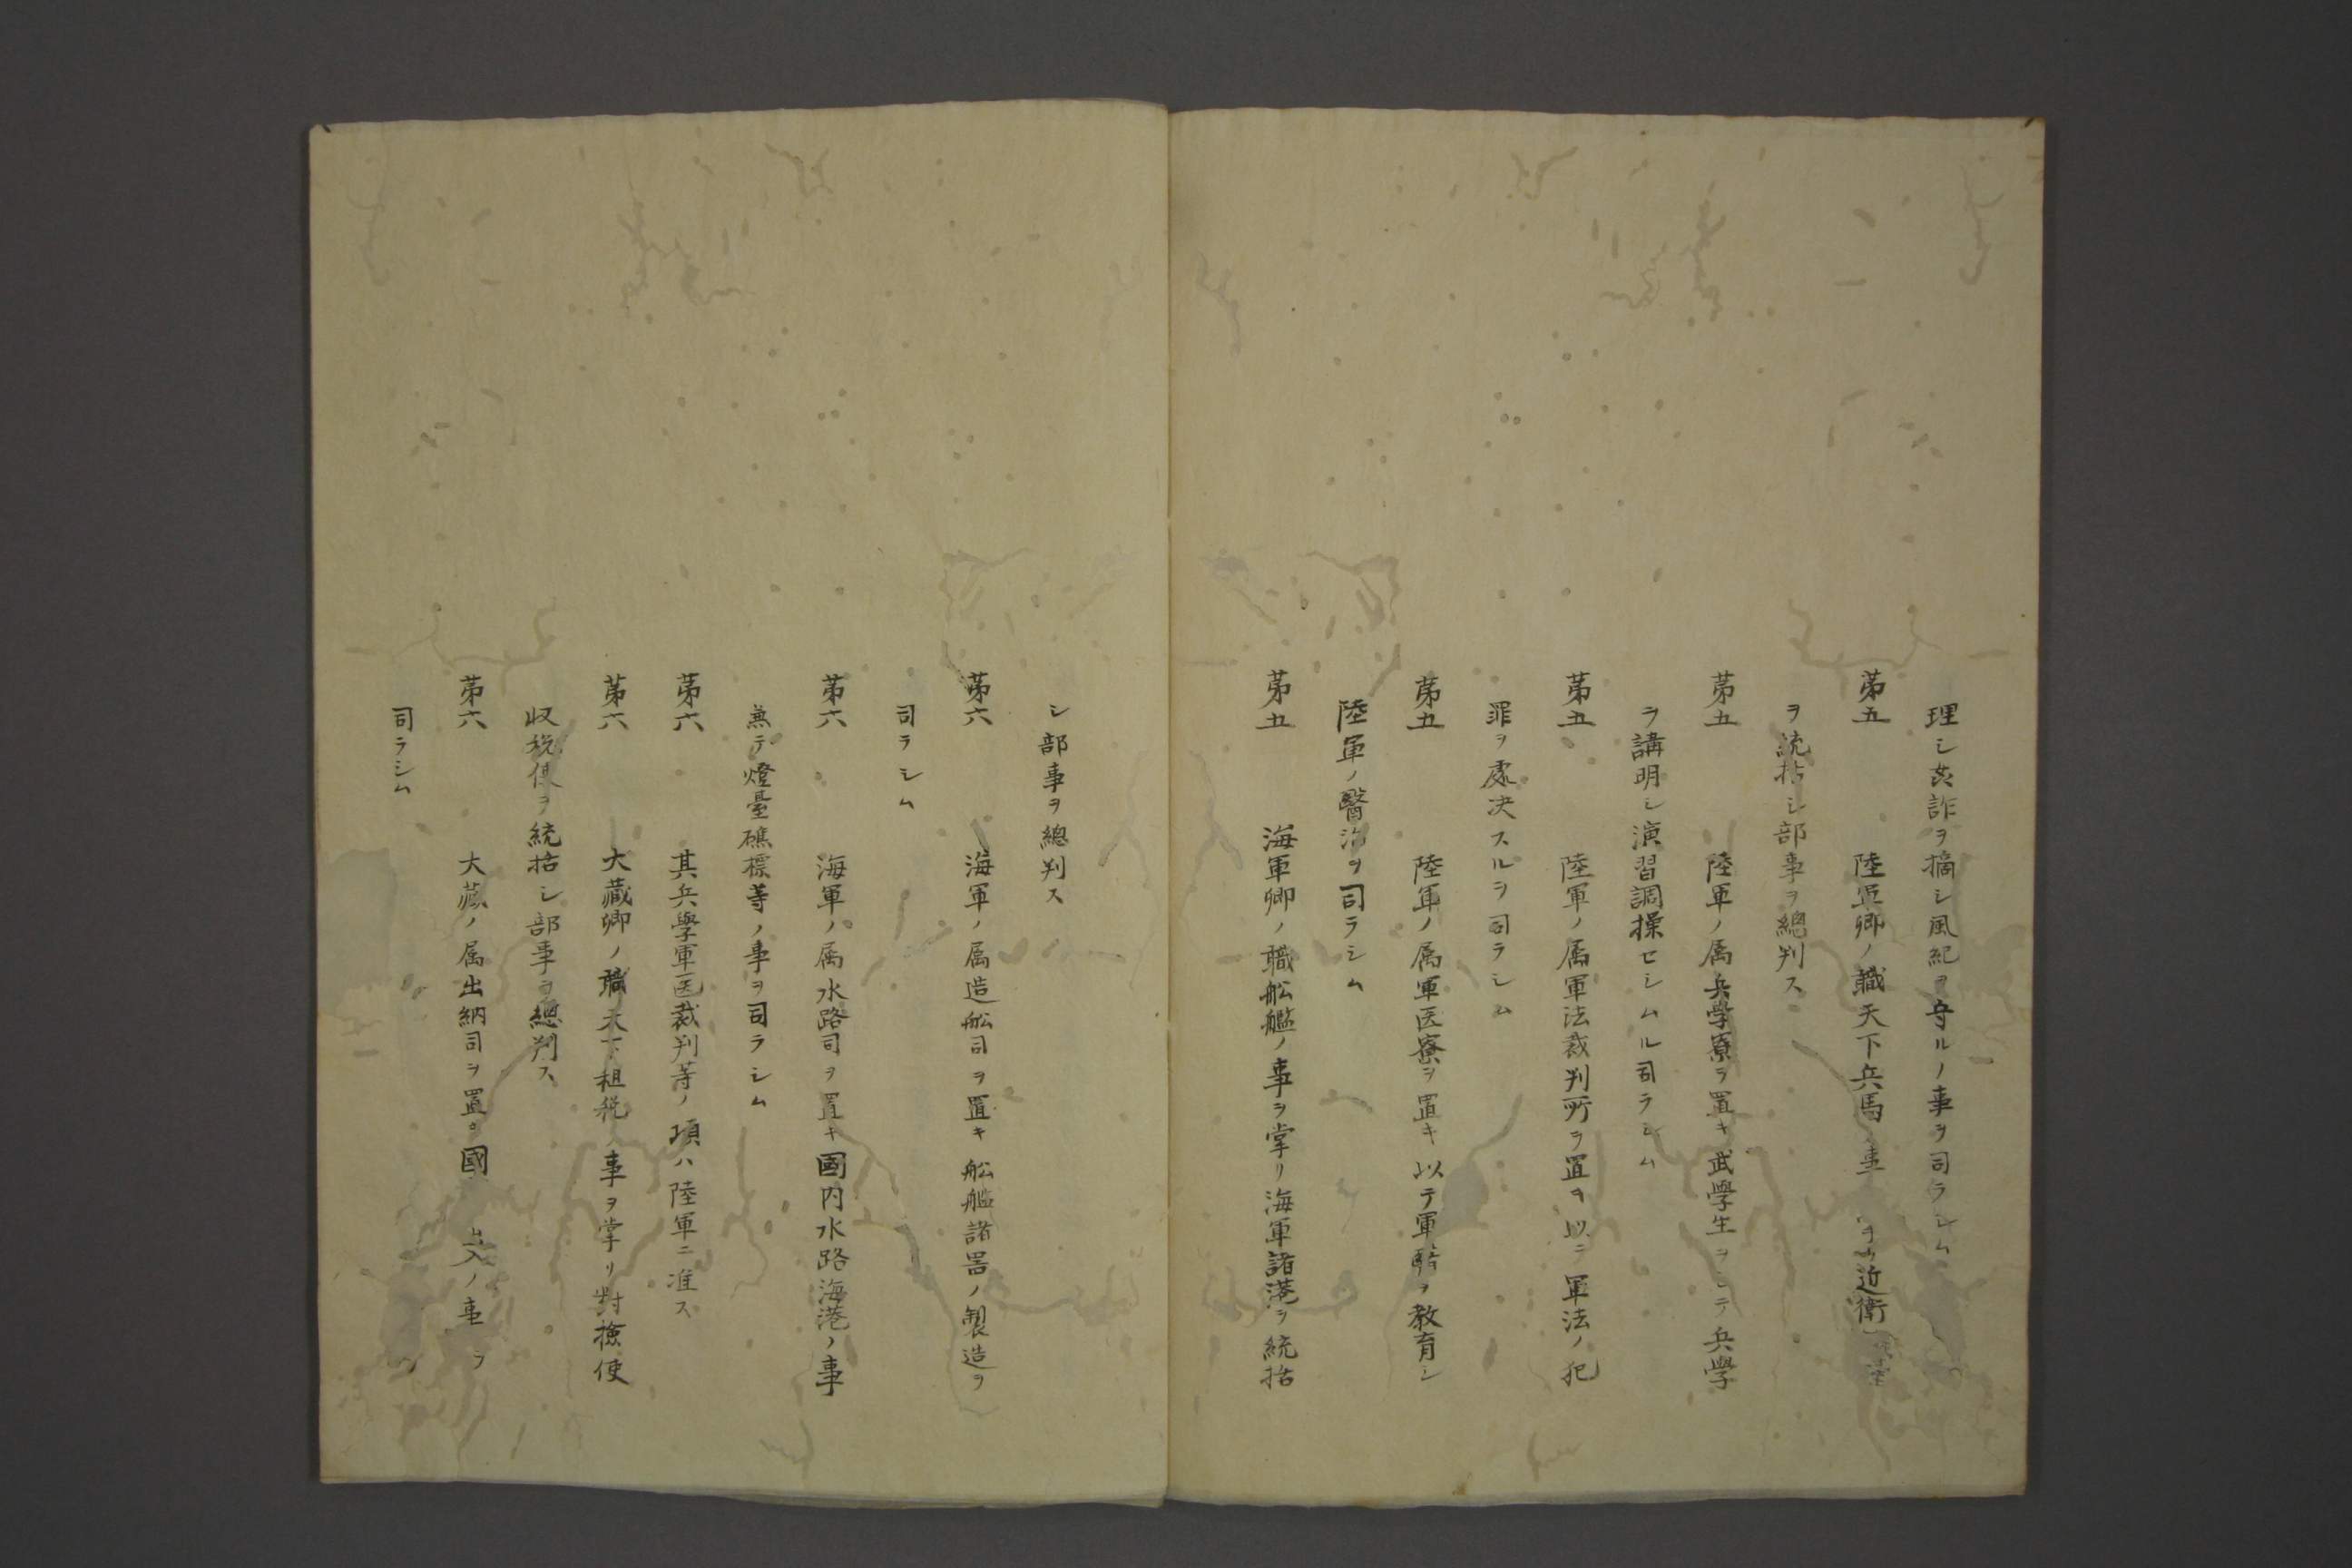 理シ姦詐ヲ摘シ風紀ヲ守ルノ事ヲ司ラシム
第五 陸軍卿ノ職天下兵馬ノ事 近衛
ヲ統括シ部事ヲ總判ス
第五 陸軍ノ属兵學寮ヲ置キ武學生ヲ テ兵學
ヲ講明シ演習調操セシムル司ラシム
第五 陸軍ノ属軍法裁判所ヲ置キ以テ軍法ノ犯
罪ヲ處决スルヲ司ラシム
第五 陸軍ノ属軍医寮ヲ置キ以テ軍醫ヲ教育シ
陸軍ノ醫治ヲ司ラシム
第五 海軍卿ノ職舩艦ノ事ヲ掌リ海軍諸港ヲ統括
シ部事ヲ總判ス
第六 海軍ノ属造舩司ヲ置キ舩艦諸噐ノ製造ヲ
司ラシム
第六 海軍ノ属水路司ヲ置キ國内水路海港ノ事
兼テ燈臺礁標等ノ事ヲ司ラシム
第六 其兵學軍医裁判等ノ項ハ陸軍ニ准ス
第六 大藏卿ノ職天下租税ノ事ヲ掌リ對撿使
収税使ヲ統括シ部事ヲ總判ス
第六 大藏ノ属出納司ヲ置 國 出入ノ事ヲ
司ラシム